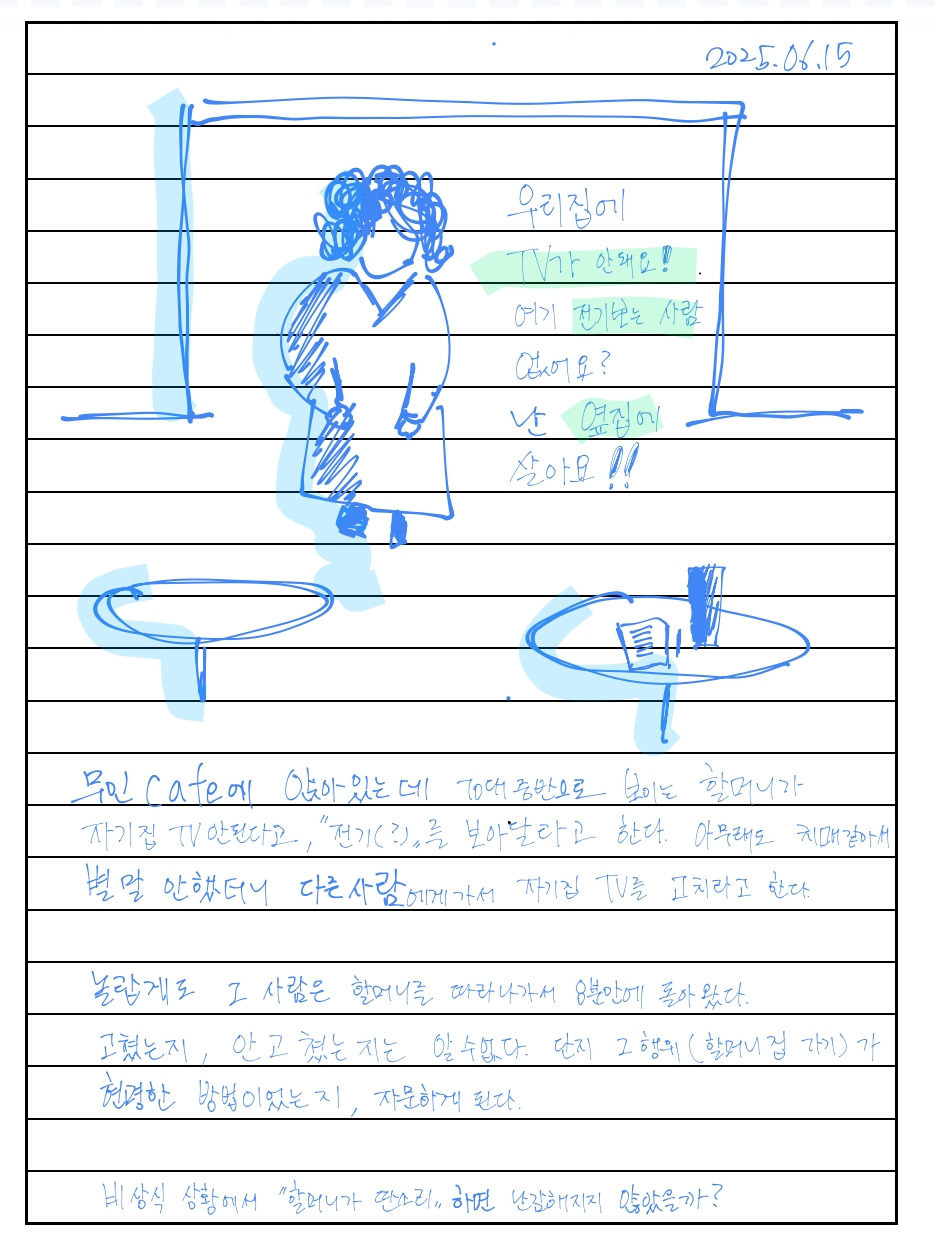 2025.06.15
우리집에
TV가 안돼요!
여기 전기보는 사람
없어요?
난 옆집에
살아요!!
무인 Cafe에 앉아있는데 70대 중반으로 보이는 할머니가
자기집 TV안된다고, "전기(?)"를 보아달라고 한다. 아무래도 치매같아서
별말 안했더니 다른사람에게가서 자기집 TV를 고치라고 한다.
놀랍게도 그 사람은 할머니를 따라나가서 8분만에 돌아왔다.
고쳤는지, 안고쳤는지는 알수없다. 단지 그행위(할머니집 가기)가
현명한 방법이었는지, 자문하게 된다.
비상식 상황에서 "할머니가 딴소리" 하면 난감해지지 않았을까?